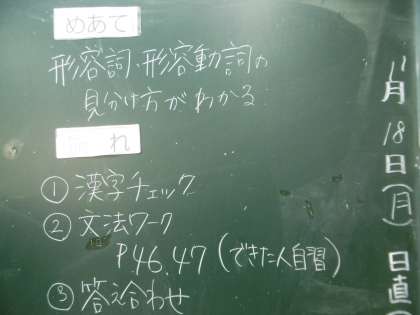 めあて
形容詞・形容動詞の
見分け方がわかる
れ
① 漢字チェック
② 文法ワーク
P46.47(できた人自習)
③ 答え合わせ
11月18日(月) 日直